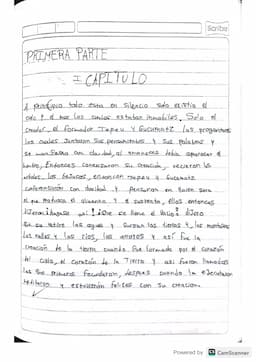 Scribe
PRIMERA PARTE
I CAPITULO
A principio todo esta en silencio solo existia el
cielo y el mar los cuales estaban inmobiles. Solo el
creador, el formador Tepeu y Gucumatz los progenitores
los cuales juntaron sus pensamientos y sus palabras y
se manifesto con claridad, al amanecer debia aparecer el
hombre, Entonces comenzaron su creación, nacieron los
arboles, los bejucos, entonces Tepeu y Gucumatz
con claridad y pensaron en quien sera
el que produzca el alimento y el sustento, Ellos entonces
dijeron ¡Hagase así! ¡Que se llene el vacío! Dijero
las aguas y surjan las tierras y, las montañas
los valles y los rios, los arroyos y así fue la
creación de la tierra cuando fue formada por el corazón
del cielo, el corazón de la Tierra y así fueron llamados
los que primero fecundaron, despues cuando la ejecutaron
y estuvieron felices con su creación.
Powered by CS CamScanner